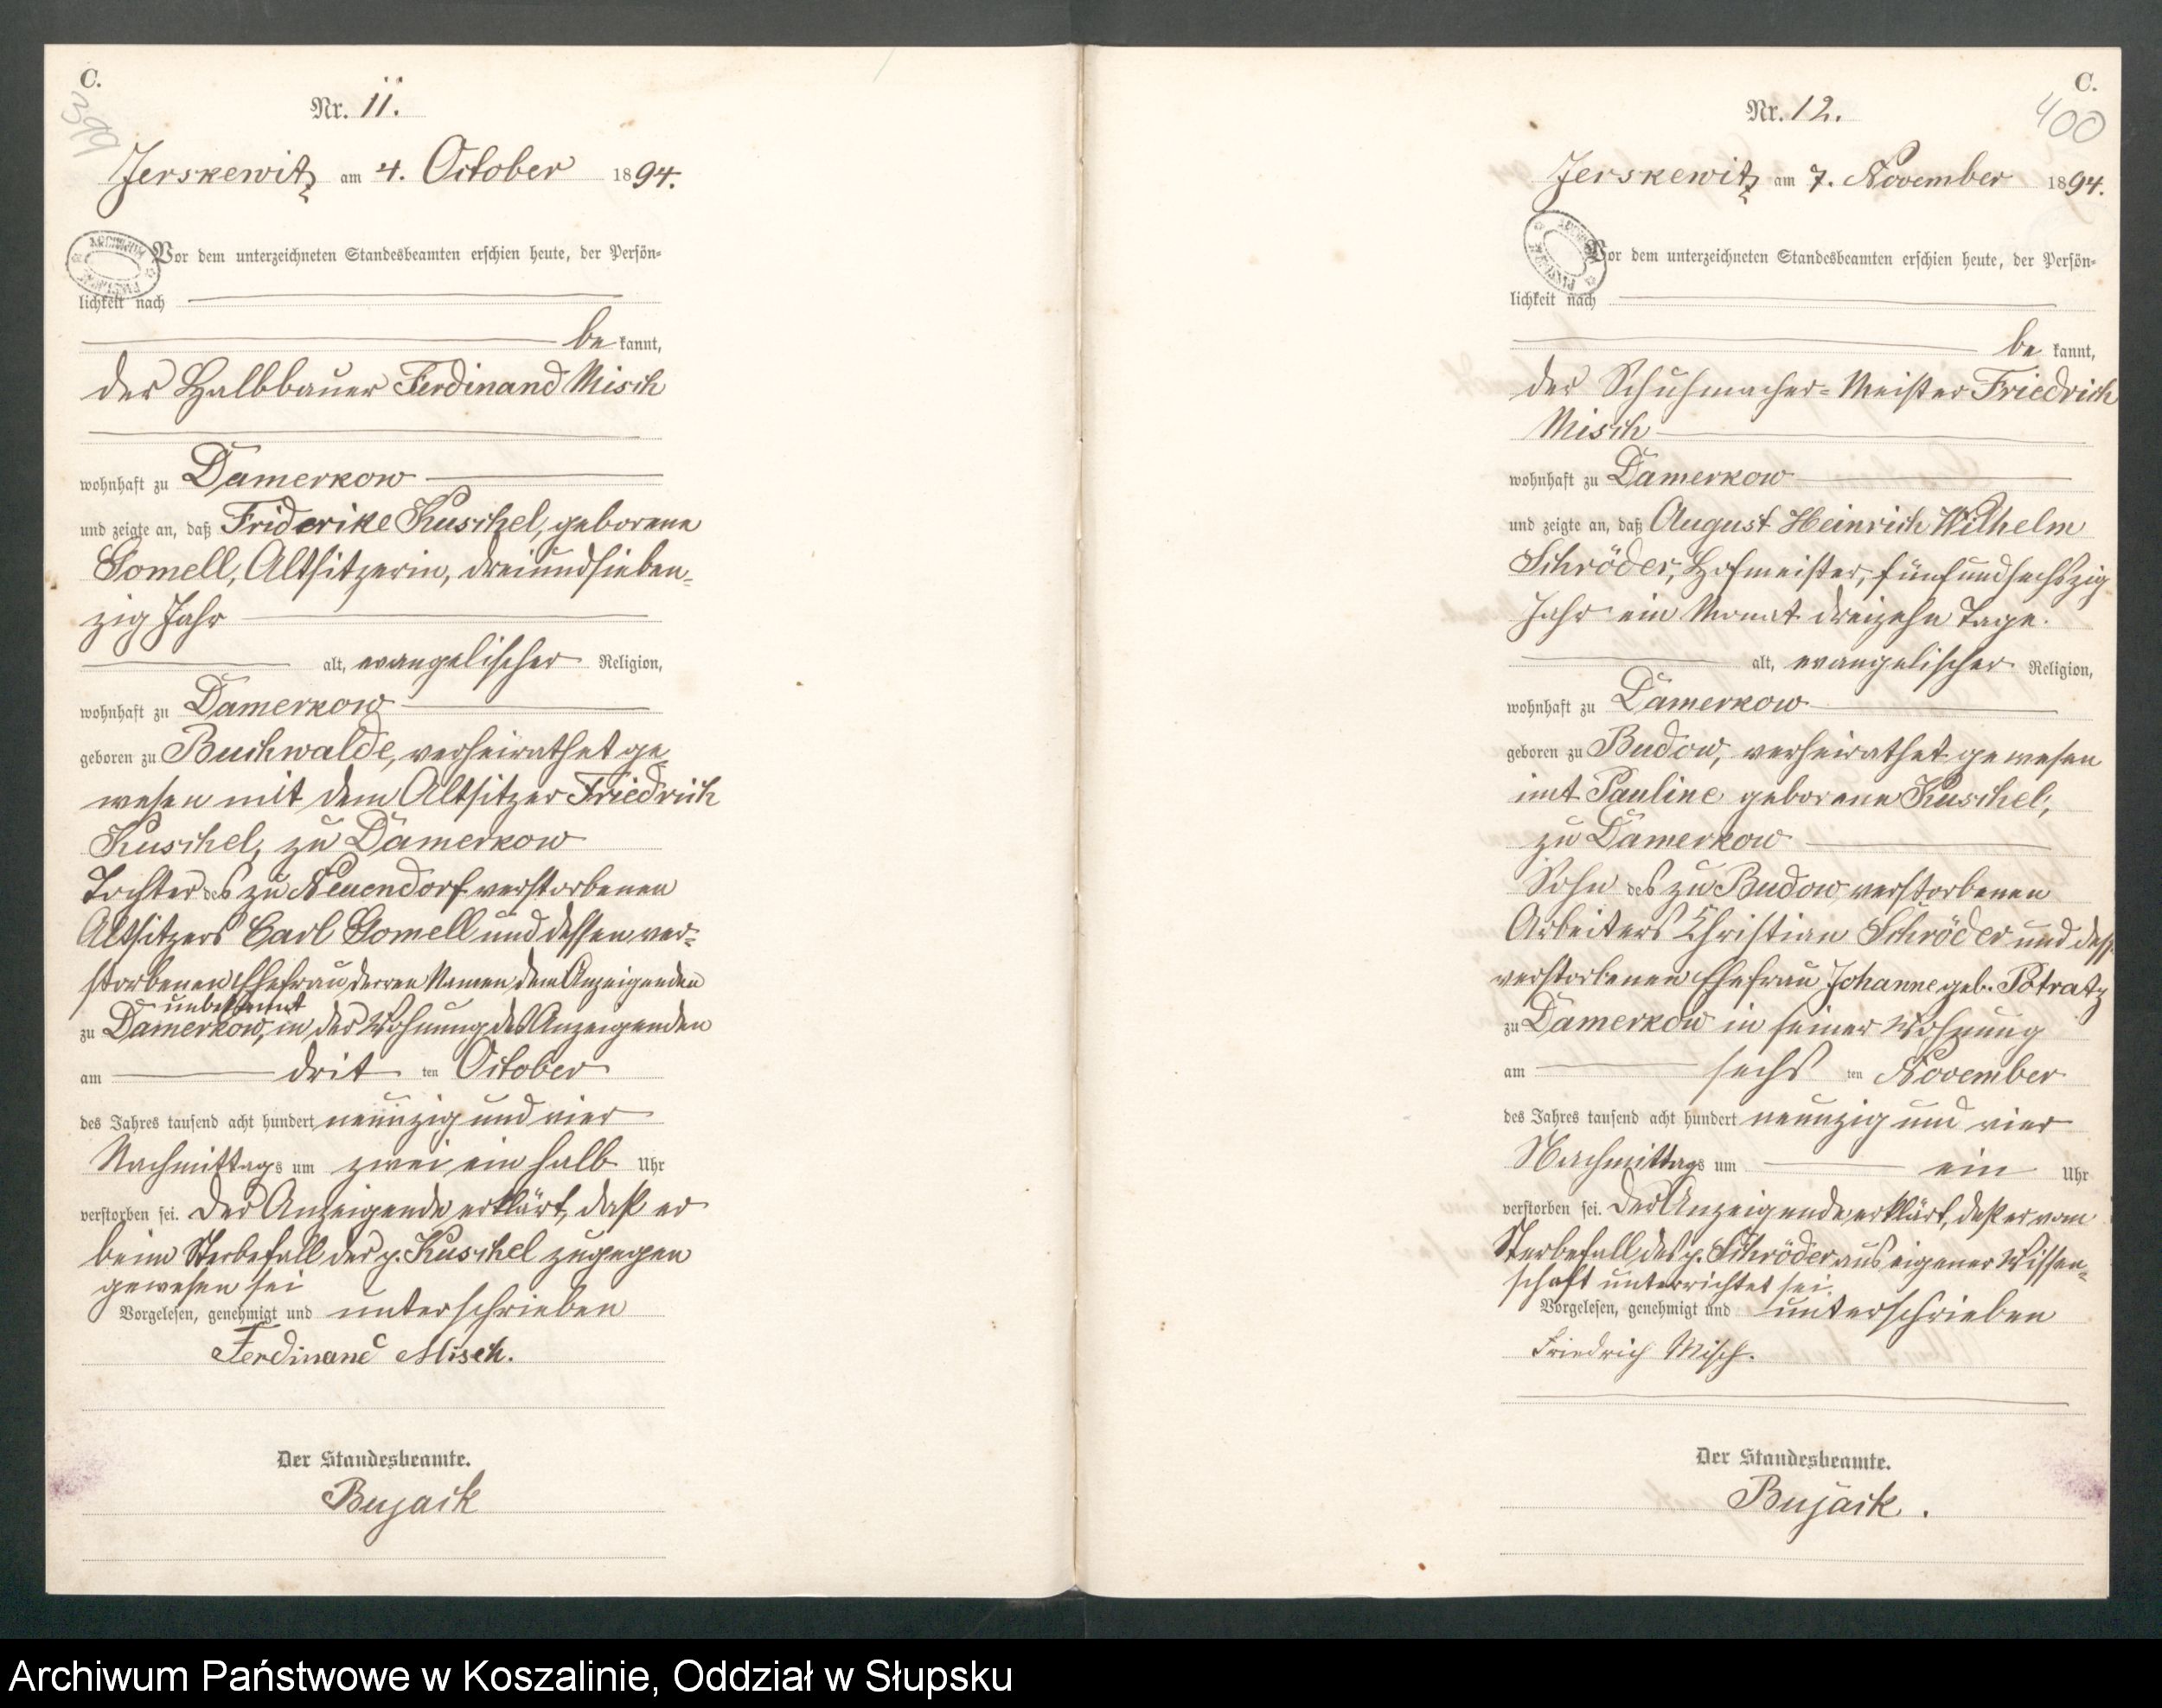 C.
399
Nr. 11.
Jerskewitz am 4. October 1894.
Vor dem unterzeichneten Standesbeamten erschien heute, der Persön-
lichkeit nach
be kannt,
der Halbbauer Ferdinand Misch
wohnhaft zu Damerkow
und zeigte an, daß Friderike Kuschel, geborene
Gomell, Altsitzerin, dreiundsieben-
zig Jahr
alt, evangelischer Religion,
wohnhaft zu Damerkow
geboren zu Buchwalde, verheirathet ge-
wesen mit dem Altsitzer Friedrich
Kuschel, zu Damerkow
Tochter des zu Neuendorf verstorbenen
Altsitzers Carl Gomell und dessen ver-
storbenen Ehefrau derren Namen dem Anzeigenden
unbekannt
zu Damerkow, in der Wohnung des Anzeigenden
am drit ten October
des Jahres tausend acht hundert neunzig und vier
Nachmittags um zwei ein halb Uhr
verstorben sei. Der Anzeigende erklärt, daß er
beim Sterbefall der p. Kuschel zugegen
gewesen sei
Vorgelesen, genehmigt und unterschrieben
Ferdinand Misch.
Der Standesbeamte.
Bujack
C.
400
Nr. 12.
Jerskewitz am 7. November 1894.
Vor dem unterzeichneten Standesbeamten erschien heute, der Persön-
lichkeit nach
be kannt,
der Schuhmacher-Meister Friedrich
Misch
wohnhaft zu Damerkow
und zeigte an, daß August Heinrich Wilhelm
Schröder, Hofmeister, fünfundsechszig
Jahr ein Monat dreizehn Tage.
alt, evangelischer Religion,
wohnhaft zu Damerkow
geboren zu Budow, verheirathet gewesen
mit Pauline geborene Kuschel,
zu Damerkow
Sohn des zu Budow verstorbenen
Arbeiters Christian Schröder und dess.
verstorbenen Ehefrau Johanne geb. Potratz
zu Damerkow in seiner Wohnung
am sechs ten November
des Jahres tausend acht hundert neunzig und vier
Nachmittags um ein Uhr
verstorben sei. Der Anzeigende erklärt, daß er vom
Sterbefall des p. Schröder aus eigener Wissen-
schaft unterrichtet sei.
Vorgelesen, genehmigt und unterschrieben
Friedrich Misch.
Der Standesbeamte.
Bujack.
Archiwum Państwowe w Koszalinie, Oddział w Słupsku